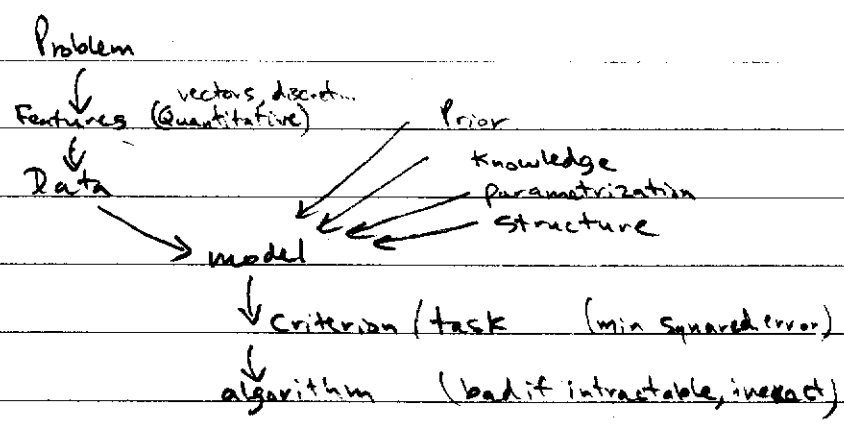 Problem
vectors, discret...
Features (Quantitative)
Prior
Knowledge
Data
parametrization
structure
model
criterion / task (min squared error)
algorithm (bad if intractable, inexact)